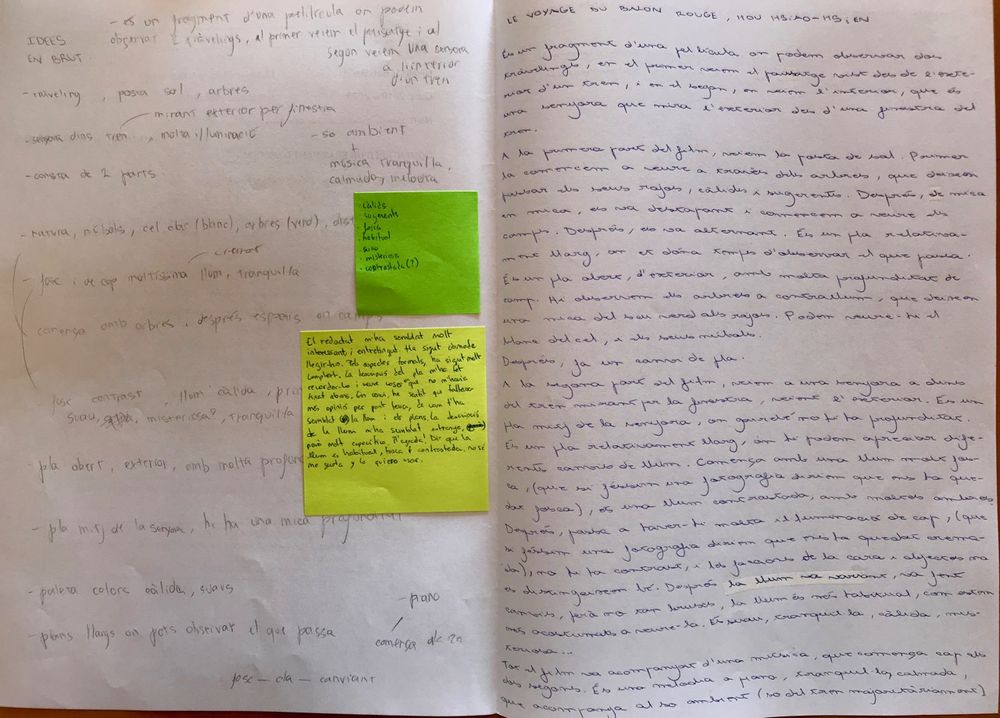 IDEES
EN BRUT.
- és un fragment d'una pel·lícula on podem
observar 2 tràvelings, al primer veiem el paisatge i al
segon veiem una senyora
a l'interior
d'un tren
- tràveling, posta sol, arbres
mirant exterior per finestra
- senyora dins tren, molta il·luminació
- so ambient
+
música tranquil·la,
calmada, melodia
- consta de 2 parts
- natura, núbols, cel clar (blanc), arbres (verd),
cremat
fosc i de cop moltíssima llum, tranquil·la
comença amb arbres, després espais on camps
fosc contrast, llum càlida,
suau, misteriosa?, tranquil·la
- pla obert, exterior, amb molta
- pla mig de la senyora, hi ha una mica profunditat
- paleta colors càlida, suaus
- piano
- plans llargs on pots observar el que passa
comença
fosc - cla - canviant
- càlida
- sugerent
- fosca
- habitual
- suau
- misteriosa
- contrastada (?)
El redactat m'ha semblat molt
interessant i entretingut. Ha sigut còmode
llegir-ho. Els aspectes formals, ha sigut molt
complert. La descripció del pla m'ha fet
recordar-lo i veure coses que no m'havia
fixat abans. En canvi, he sentit que faltaven
més opinió per part teva, de com t'ha
semblat la llum i els plans. La descripció
de la llum m'ha semblat estranya,
però molt específica. M'agrada! Dir que la
llum és habitual, fosca i contrastada, no sé
me gusta y lo quiero usar.
LE VOYAGE DU BALON ROUGE, HOU HSIAO-HSIEN
És un fragment d'una pel·lícula on podem observar dos
tràvelings, en el primer veiem el paisatge vist des de l'exte-
rior d'un tren, i en el segon, en veiem l'interior, que és
una senyora que mira l'exterior des d'una finestra del
tren.
A la primera part del film, veiem la posta de sol. Primer
la comencem a veure a través dels arbres, que deixen
passar els seus rajos, càlids i sugerents. Després, de mica
en mica, es va destapant i comencem a veure els
camps. Després, es va alternant. És un pla relativa-
ment llarg, on et dóna temps d'observar el que passa.
És un pla obert, d'exterior, amb molta profunditat de
camp. Hi observem els arbres a contrallum, que deixen
una mica del seu verd als rajos. Podem veure-hi el
blanc del cel, i els seus núbols.
Després, fa un canvi de pla.
A la segona part del film, veiem a una senyora a dins
del tren mirant per la finestra, veient l'exterior. És un
pla mig de la senyora, on gairebé no hi ha profunditat.
És un pla relativament llarg, on hi podem apreciar dife-
rents canvis de llum. Comença amb una llum molt fos-
ca, (que si féssim una fotografia diríem que ens ha que-
dat fosca), és una llum contrastada, amb moltes ombres.
Després, passa a haver-hi molta il·luminació de cop, (que
si féssim una fotografia diríem que ens ha quedat crema-
da), no hi ha contrast, i les faccions de la cara i objectes no
es distingeixen bé. Després la llum va variant, va fent
canvis, però no tan bruscs, la llum és més habitual, com estem
més acostumats a veure-la. És suau, tranquil·la, càlida, mis-
teriosa...
Tot el film va acompanyat d'una música, que comença cap els
dos segons. És una melodia a piano, tranquil·la, calmada,
que acompanya al so ambient (so del tren majoritàriament)